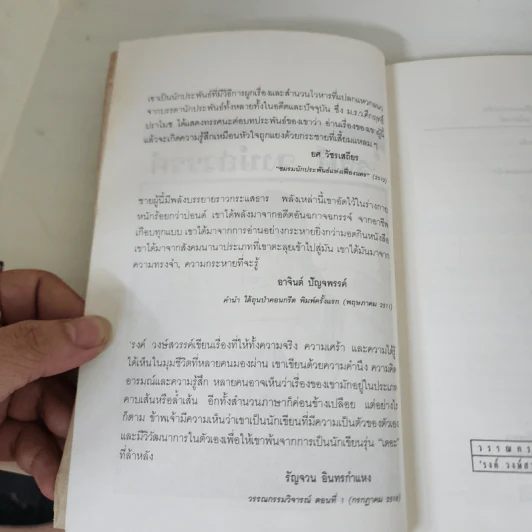 เขาเป็นนักประพันธ์ที่มีวิธีการผูกเรื่องและสำนวนโวหารที่แปลกแหวกแนว
จากบรรดานักประพันธ์ทั้งหลายทั้งในอดีตและปัจจุบัน ซึ่ง ม.ร.ว.คึกฤทธิ์
ปราโมช ได้แสดงทรรศนะต่อบทประพันธ์ของเขาว่า อ่านเรื่องของเขาผู้นี้
แล้วจะเกิดความรู้สึกเหมือนหัวใจถูกแยงด้วยกระชายที่เสี้ยมแหลม ๆ
ยศ วัชรเสถียร
"ชมรมนักประพันธ์แห่งเฟื่องนคร"
ชายผู้นี้มีพลังบรรยายราวกระแสธาร พลังเหล่านี้เขาอัดไว้ในร่างกาย
หนักร้อยกว่าปอนด์ เขาได้พลังมาจากอดีตอันฉกาจฉกรรจ์ จากอาชีพ
เกือบทุกแบบ เขาได้มาจากการอ่านอย่างกระหายยิ่งกว่ามอดกินหนังสือ
เขาได้มาจากสังคมนานาประเภทที่เขาตะลุยเข้าไปสู่มัน เขาได้มันมาจาก
ความทรงจำ, ความกระหายที่จะรู้
อาจินต์ ปัญจพรรค์
คำนำ ใต้ถุนป่าคอนกรีต พิมพ์ครั้งแรก (พฤษภาคม 2511)
'รงค์ วงษ์สวรรค์เขียนเรื่องที่ให้ทั้งความจริง ความเศร้า และความใฝ่รู้
ได้เห็นในมุมชีวิตที่หลายคนมองผ่าน เขาเขียนด้วยความคำนึง ความคิด
อารมณ์และความรู้สึก หลายคนอาจเห็นว่าเรื่องของเขามักอยู่ในประเภท
คาบเส้นหรือล้ำเส้น อีกทั้งสำนวนภาษาก็ค่อนข้างเปลือย แต่อย่างไร
ก็ตาม ข้าพเจ้ามีความเห็นว่าเขาเป็นนักเขียนที่มีความเป็นตัวของตัวเอง
และมีวิวัฒนาการในตัวเองเพื่อให้เขาพ้นจากการเป็นนักเขียนรุ่น "เดอะ"
ที่ล้าหลัง
รัญจวน อินทรกำแหง
วรรณกรรมวิจารณ์ ตอนที่ 1 (กรกฎาคม
'รงค์ วงษ์